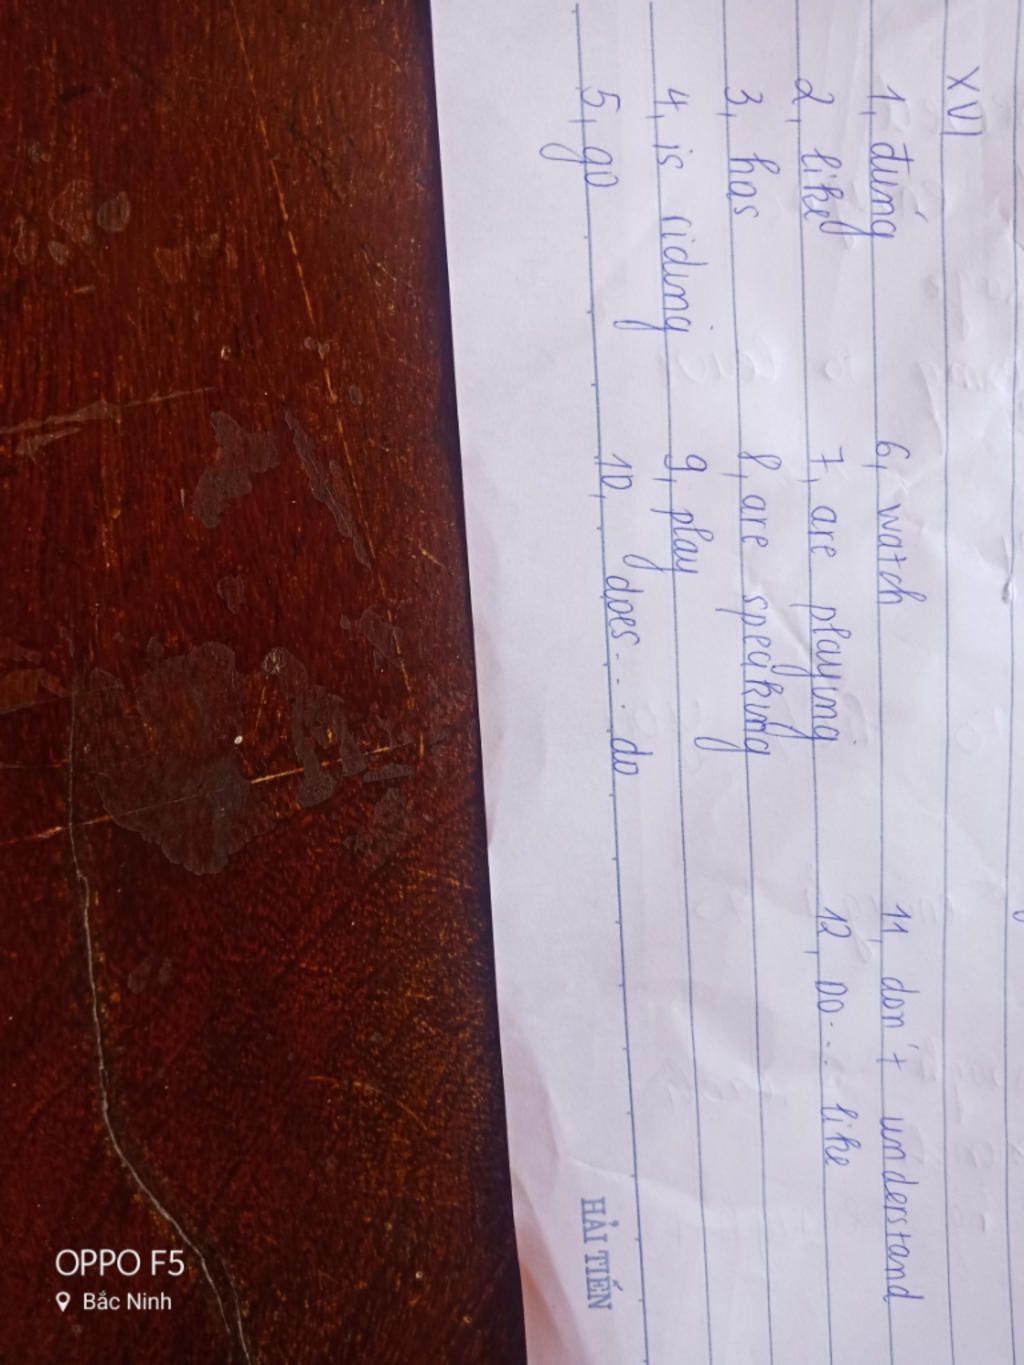 XVI
1, đúng 6, watch 11, don't understand
2, like 7, are playing 12, Do... like
3, has 8, are speaking
4, is riding 9, play
5, go 10, does... do
HẢI TIẾN
OPPO F5
Bắc Ninh